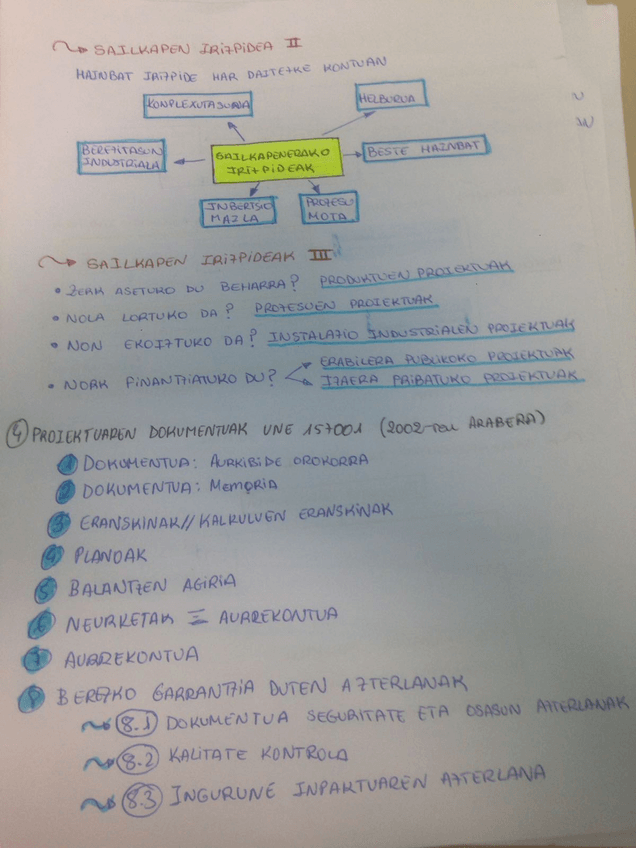 SAILKAPEN IRIZPIDEA II
HAINBAT IRIZPIDE HAR DAITEZKE KONTUAN
KONPLEXUTASUNA
HELBURUA
BEREZITASUN
INDUSTRIALA
SAILKAPENERAKO
IRIZPIDEAK
BESTE HAINBAT
INBERTSIO
MAILA
PROZESU
MOTA
SAILKAPEN IRIZPIDEAK III
• ZERK ASETUKO DU BEHARRA? PRODUKTUEN PROIEKTUAK
• NOLA LORTUKO DA? PROZESUEN PROIEKTUAK
• NON EKOIZTUKO DA? INSTALAZIO INDUSTRIALEN PROIEKTUAK
ERABILERA PUBLIKOKO PROIEKTUAK
• NORK FINANTZIATUKO DU?
IZAERA PRIBATUKO PROIEKTUAK
4 PROIEKTUAREN DOKUMENTUAK UNE 157001 (2002-ren ARABERA)
1 DOKUMENTUA: AURKIBIDE OROKORRA
2 DOKUMENTUA: MEMORIA
3 ERANSKINAK // KALKULUEN ERANSKINAK
4 PLANOAK
5 BALANTZEN AGIRIA
6 NEURKETAK = AURREKONTUA
7 AURREKONTUA
8 BEREZKO GARRANTZIA DUTEN AZTERLANAK
8.1 DOKUMENTUA SEGURITATE ETA OSASUN AZTERLANAK
8.2 KALITATE KONTROLA
8.3 INGURUNE INPAKTUAREN AZTERLANA